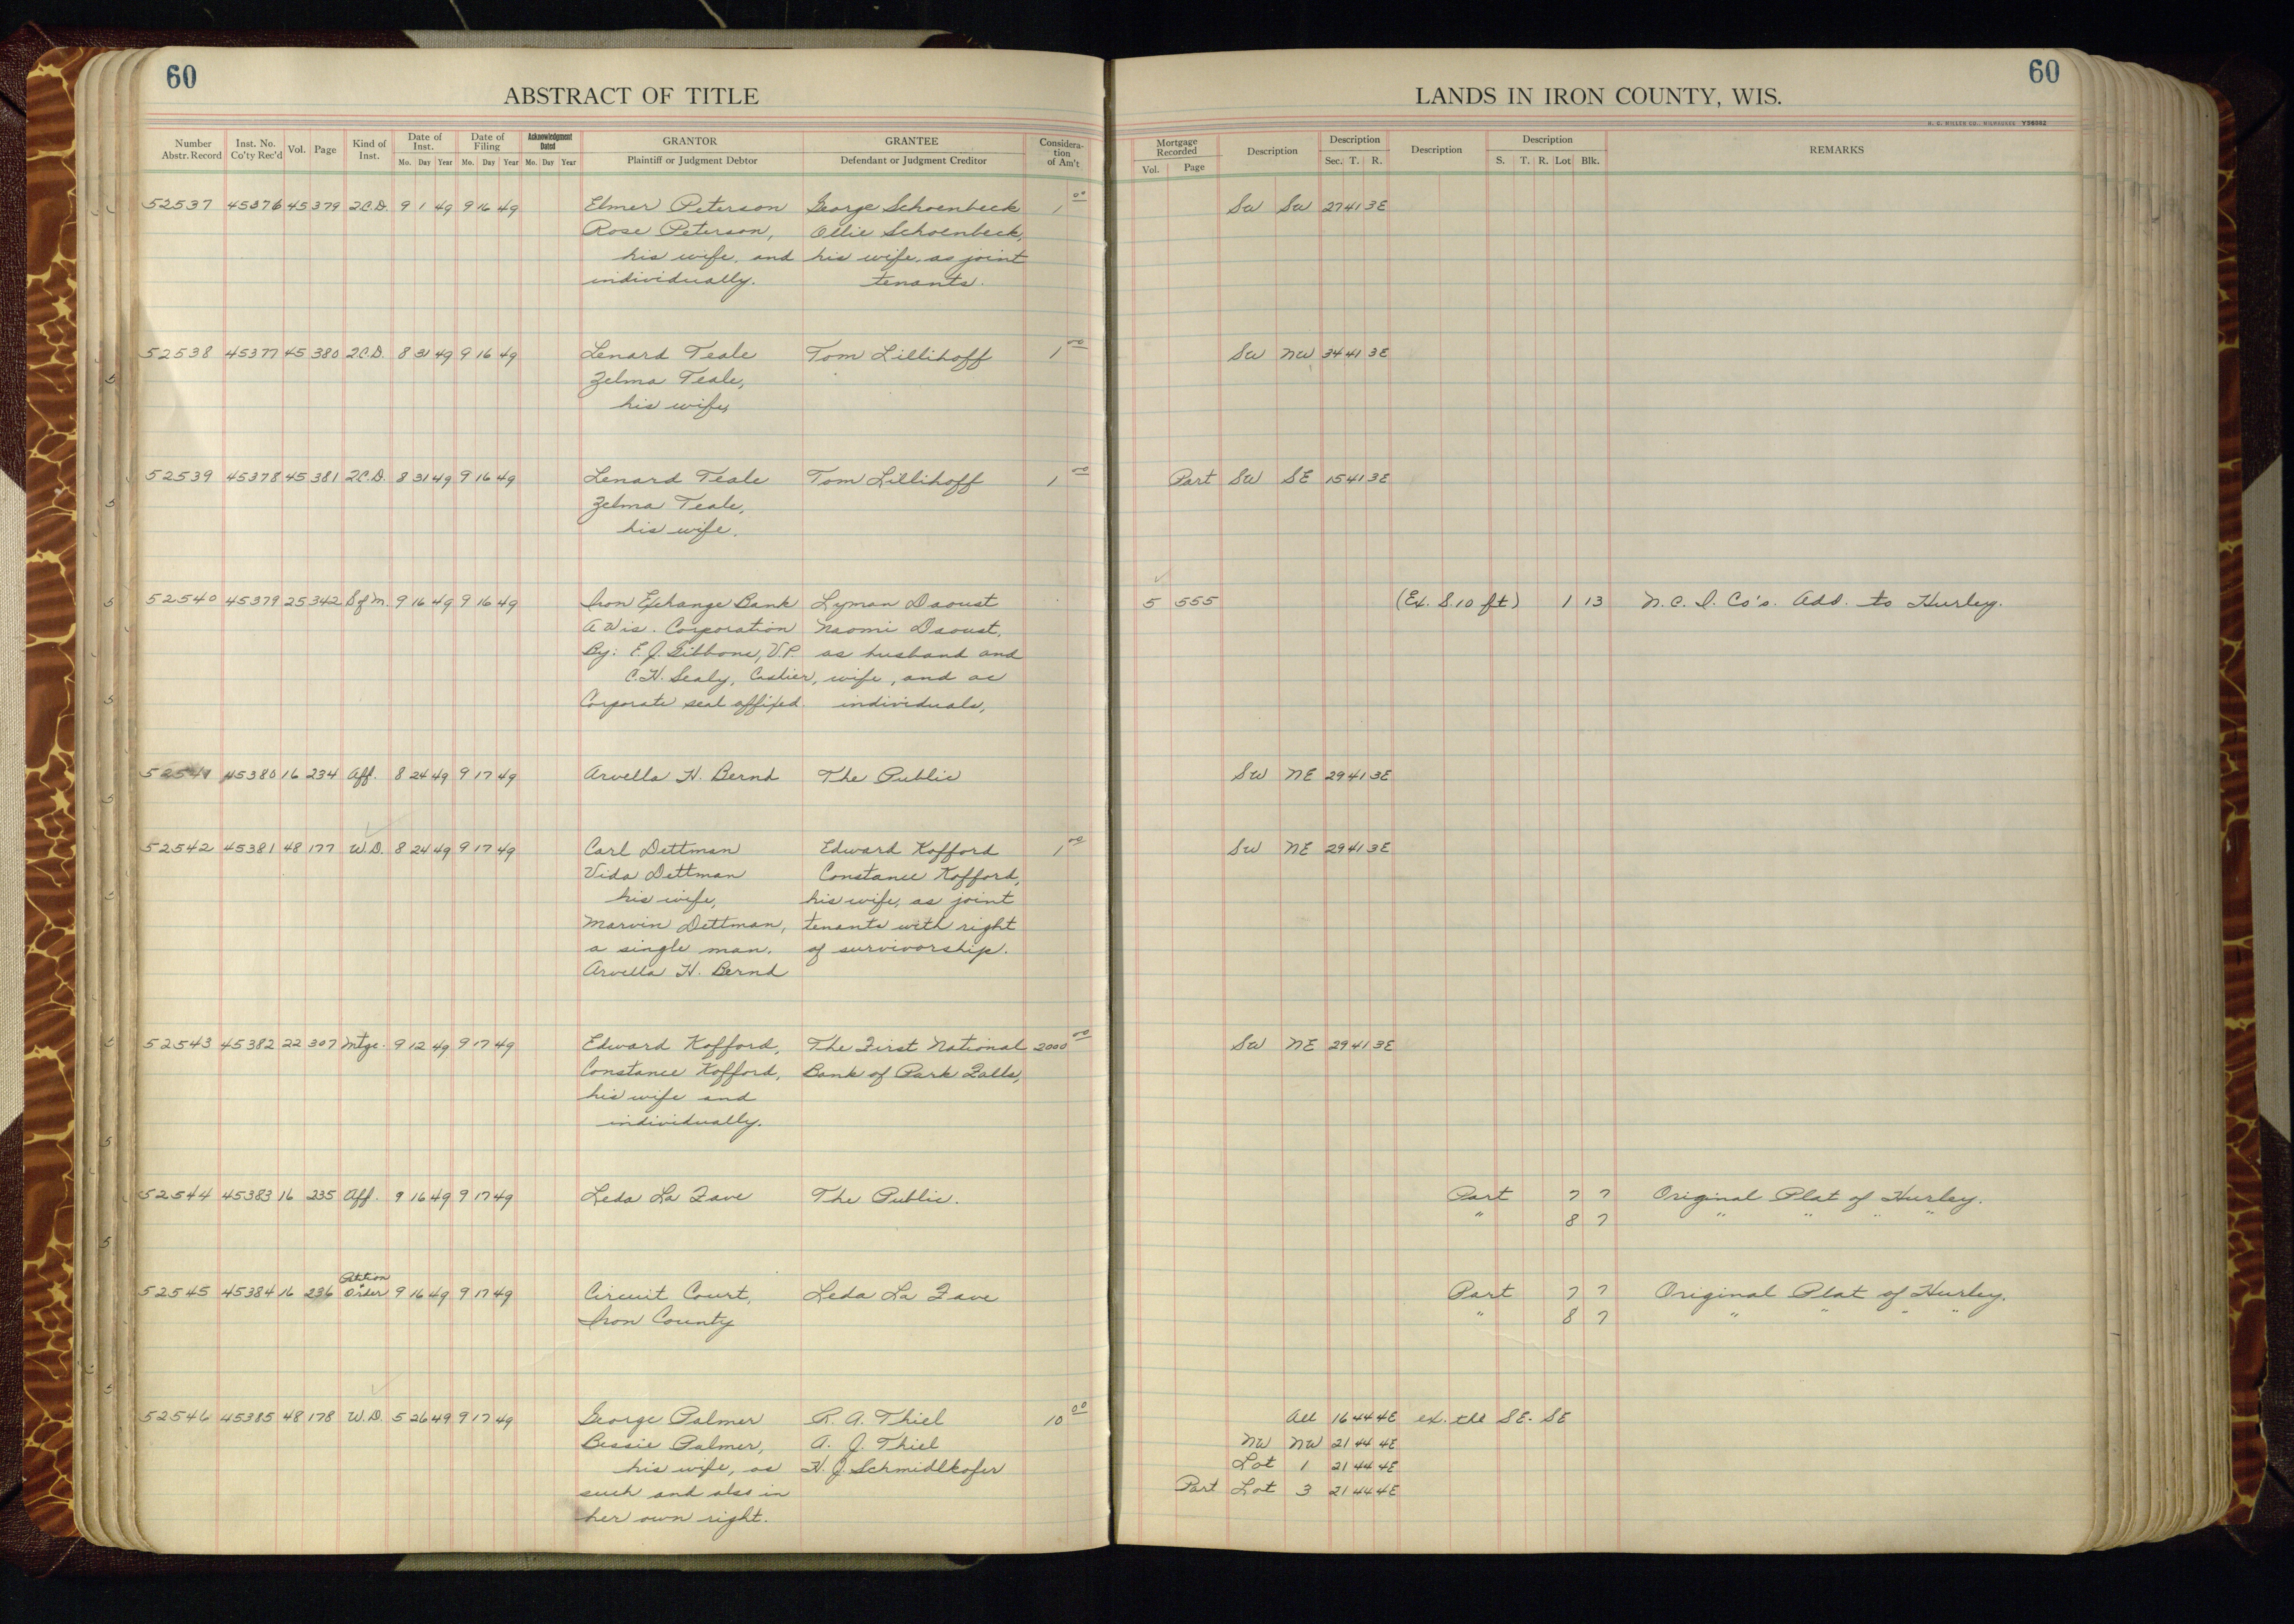 60
ABSTRACT OF TITLE
Number Abstr. Record Inst. No. Co'ty Rec'd Vol. Page Kind of Inst. Date of Inst. Mo. Day Year Date of Filing Mo. Day Year Acknowledgment Dated Mo. Day Year GRANTOR Plaintiff or Judgment Debtor GRANTEE Defendant or Judgment Creditor Considera-tion of Am't
52537 45376 45 379 2.C.D. 9 1 49 9 16 49 Elmer Peterson George Schoenbeck 1 00
Rose Peterson, Ollie Schoenbeck,
his wife, and his wife, as joint
individually. tenants.
52538 45377 45 380 2.C.D. 8 31 49 9 16 49 Lenard Teale Tom Lillihoff 1 00
Zelma Teale,
his wife,
52539 45378 45 381 2.C.D. 8 31 49 9 16 49 Lenard Teale Tom Lillihoff 1 00
Zelma Teale,
his wife.
52540 45379 25 342 S of M. 9 16 49 9 16 49 Iron Exchange Bank Lyman Daoust
A Wis. Corporation Naomi Daoust,
By: E.J. Gibbons, V.P. as husband and
C.H. Sealy, Cashier, wife, and as
Corporate seal affixed. individuals,
52541 45380 16 234 Aff. 8 24 49 9 17 49 Arvella H. Bernd The Public
52542 45381 48 177 W.D. 8 24 49 9 17 49 Carl Dettman Edward Kofford 1 00
Vida Dettman Constance Kofford,
his wife, his wife, as joint
Marvin Dettman, tenants with right
a single man. of survivorship.
Arvella H. Bernd
52543 45382 22 307 Mtge. 9 12 49 9 17 49 Edward Kofford, The First National 2000 00
Constance Kofford, Bank of Park Falls,
his wife and
individually.
52544 45383 16 235 Aff. 9 16 49 9 17 49 Leda La Fave The Public.
Petition
52545 45384 16 236 & Order 9 16 49 9 17 49 Circuit Court, Leda La Fave
Iron County
52546 45385 48 178 W.D. 5 26 49 9 17 49 George Palmer R. A. Thiel 10 00
Bessie Palmer, A. J. Thiel
his wife, as H. J. Schmidlkofer
such and also in
her own right.
60
LANDS IN IRON COUNTY, WIS.
H. C. MILLER CO., MILWAUKEE Y26862
Mortgage Recorded Vol. Page Description Description Sec. T. R. Description Description S. T. R. Lot Blk. REMARKS
SW SW 27 41 3E
SW NW 34 41 3E
Part SW SE 15 41 3E
5 555 (Ex. S. 10 ft) 1 13 N.C.I. Co's. Add. to Hurley.
SW NE 29 41 3E
SW NE 29 41 3E
SW NE 29 41 3E
Part 7 7 Original Plat of Hurley.
" 8 7 " " " "
Part 7 7 Original Plat of Hurley.
" 8 7 " " " "
All 16 44 4E ex. the SE. SE
NW NW 21 44 4E
Lot 1 21 44 4E
Part Lot 3 21 44 4E